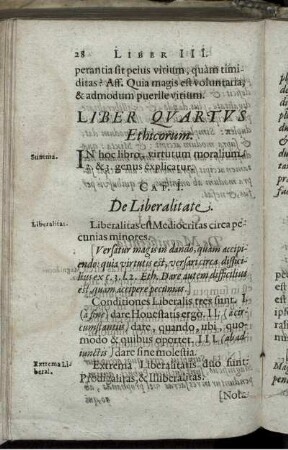 28 LIBER III.
perantia sit peius vitium, quàm timi-
ditas? Aff. Quia magis est voluntaria,
& admodum puerile vitium.
LIBER QVARTVS
Ethicorum.
Summa.
IN hoc libro, virtutum moralium,
2. & 3. genus explicatur.
CAP. I.
De Liberalitate.
Liberalitas.
Liberalitas est Mediocritas circa pe-
cunias minores.
[Versatur magis in dando, quàm accipi-
endo: quia virtutis est, versari circa diffici-
lius ex c. 3. l. 2. Eth. Dare autem difficilius
est, quàm accipere pecunias.]
Conditiones Liberalis tres sunt. I.
(à fine) dare Honestatis ergo. II. (à cir-
cumstantiis) dare, quando, ubi, quo-
modo & quibus oportet. III. (ab ad-
iunctis) dare sine molestia.
Extrema Li-
beral.
Extrema Liberalitatis duo sunt:
Prodigalitas, & Illiberalitas.
[Not.